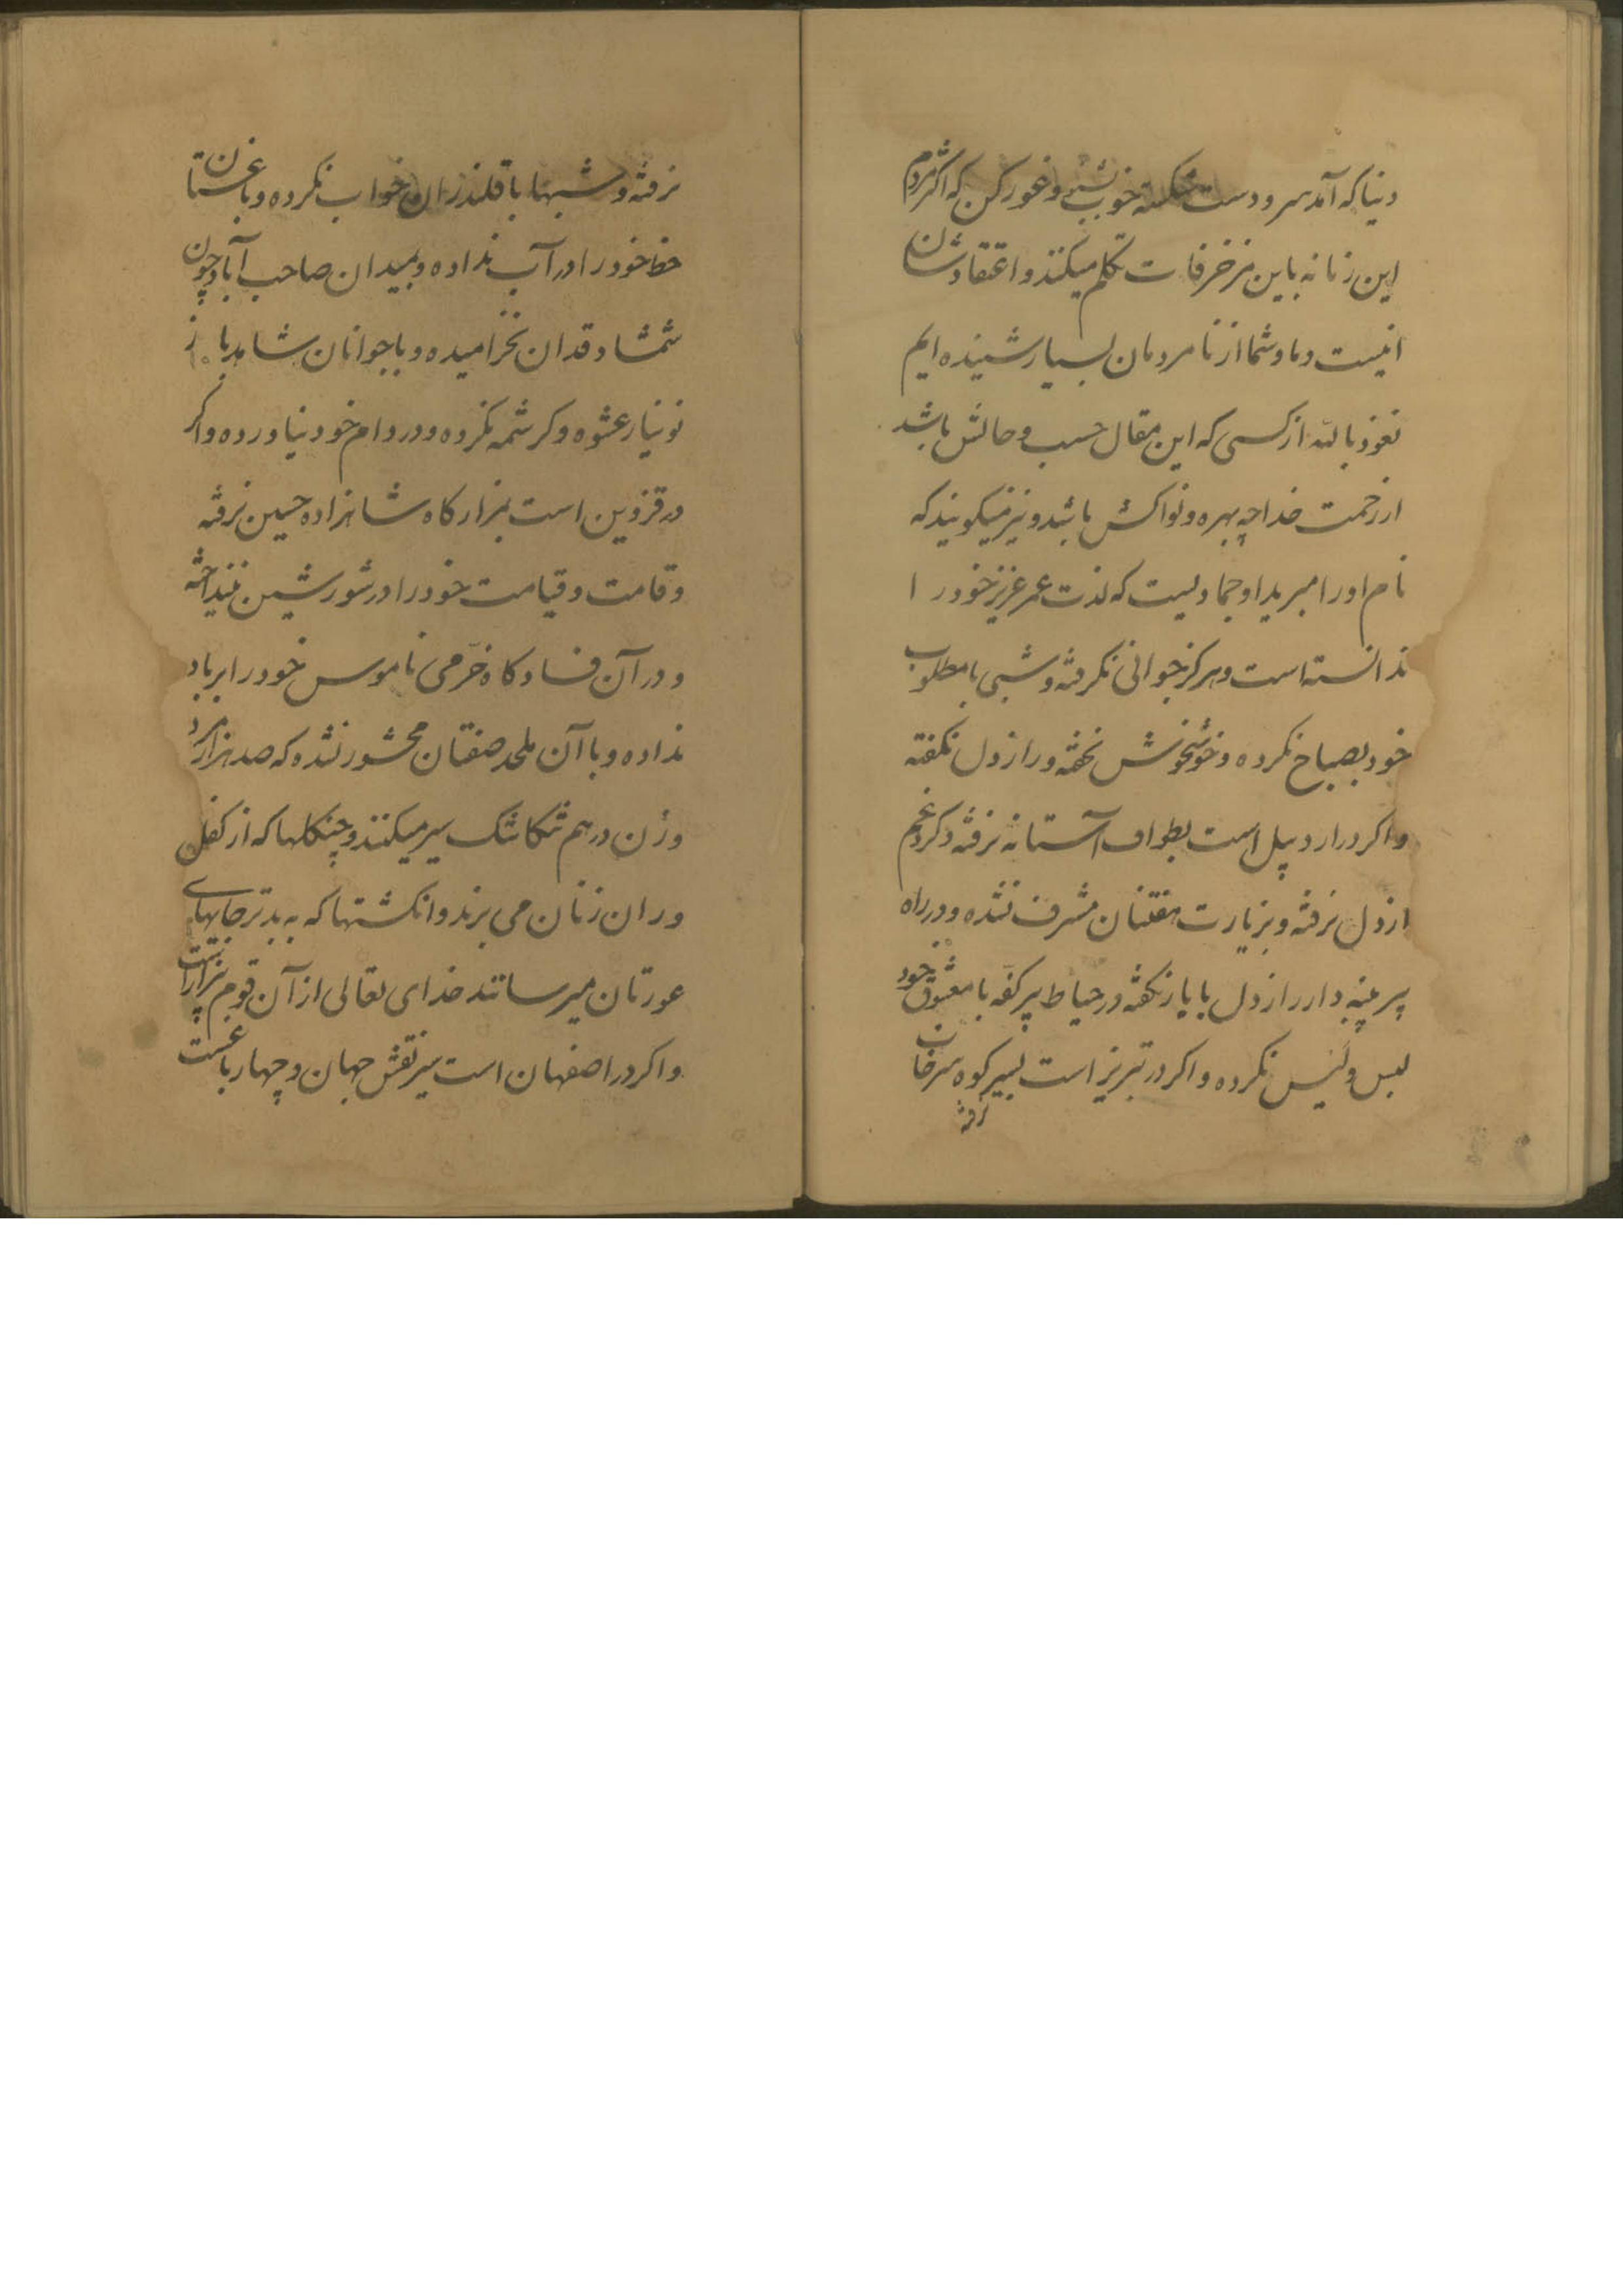 دنیا که آمد سر و دست شکسته خوب ببین و غور کن که اکثر مردم
این زمانه باین مزخرفات تکلم میکنند و اعتقادشان
اینست و ما و شما از نامردمان بسیار شنیده ایم
نعوذ بالله از کسی که این مقال حسب و حالش باشد
از رحمت خدا چه بهره و نوا کش باشد و نیز میکویند که
نام او را مبرید او جمادیست که لذت عمر عزیز خود را
ندانسته است و هرکز جوانی نکرفته و شبی با مطلوب
خود بصباح نکرده و خوشخوش نخفته و راز دل نکفته
و اکر در اردبیل است بطواف آستانه نرفته و کرد غم
از دل نرفته و بزیارت هفتنان مشرف نشده و در راه
پیر پنبه دار راز دل با یار نکفته در حیاط پیر کفه با معشوق خود
لبس و لیس نکرده و اکر در تبریز است بسیر کوه سرخاب
نرفته
نرفته و شبها با قلندران خواب نکرده و باغستان
خط خود را در آب نداده و بمیدان صاحب آباد چون
شمشاد قدان نخرامیده و با جوانان شاهد باز
نو نیاز عشوه و کرشمه نکرده و در دام خود نیاورده و اکر
در قزوین است بمزار کاه شاهزاده حسین نرفته
و قامت و قیامت خود را در شور شین نینداخته
و در آن فساد کاه خرمی ناموس خود را بر باد
نداده و با آن ملحد صفتان محشور نشده که صد هزار مرد
و زن در هم شکاشک سیر میکنند و چنکلها که از کفل
و ران زنان می برند و انکشتها که به بدتر جایهای
عورتان میرسانند خدای تعالی از آن قوم بیزار است
و اکر در اصفهان است سیر نقش جهان و چهار باغست